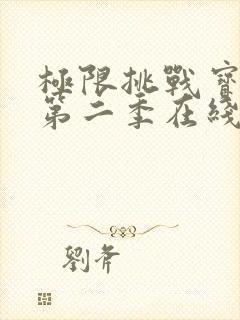 極限挑戰寶
第二季在綫
劉斧